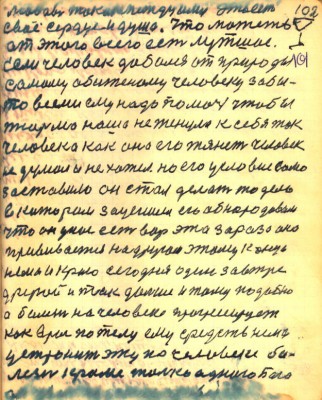 102
своё сердце и душа. Что может
от этого всего есть лутшие.
Если человек добался от природы
самому обиженому человеку забы-
тому всеми ему надо помоч чтобы
тюрма наша не тенула к себя так
человека как она его тянет человек
не думал и не хотел но его условие само
заставило он стал делат то дело
в котором зацепили его обнародовали
что он уже ест вор эта зараза она
прививается на другом этому конца
нема и краю сегодня один завтра
другой и так далше и тому подобно
а болезн на человеке прогресирует
как враг по телу ему средств нема
устронит эту на человеке бо-
лезн кроме толко одного Бога